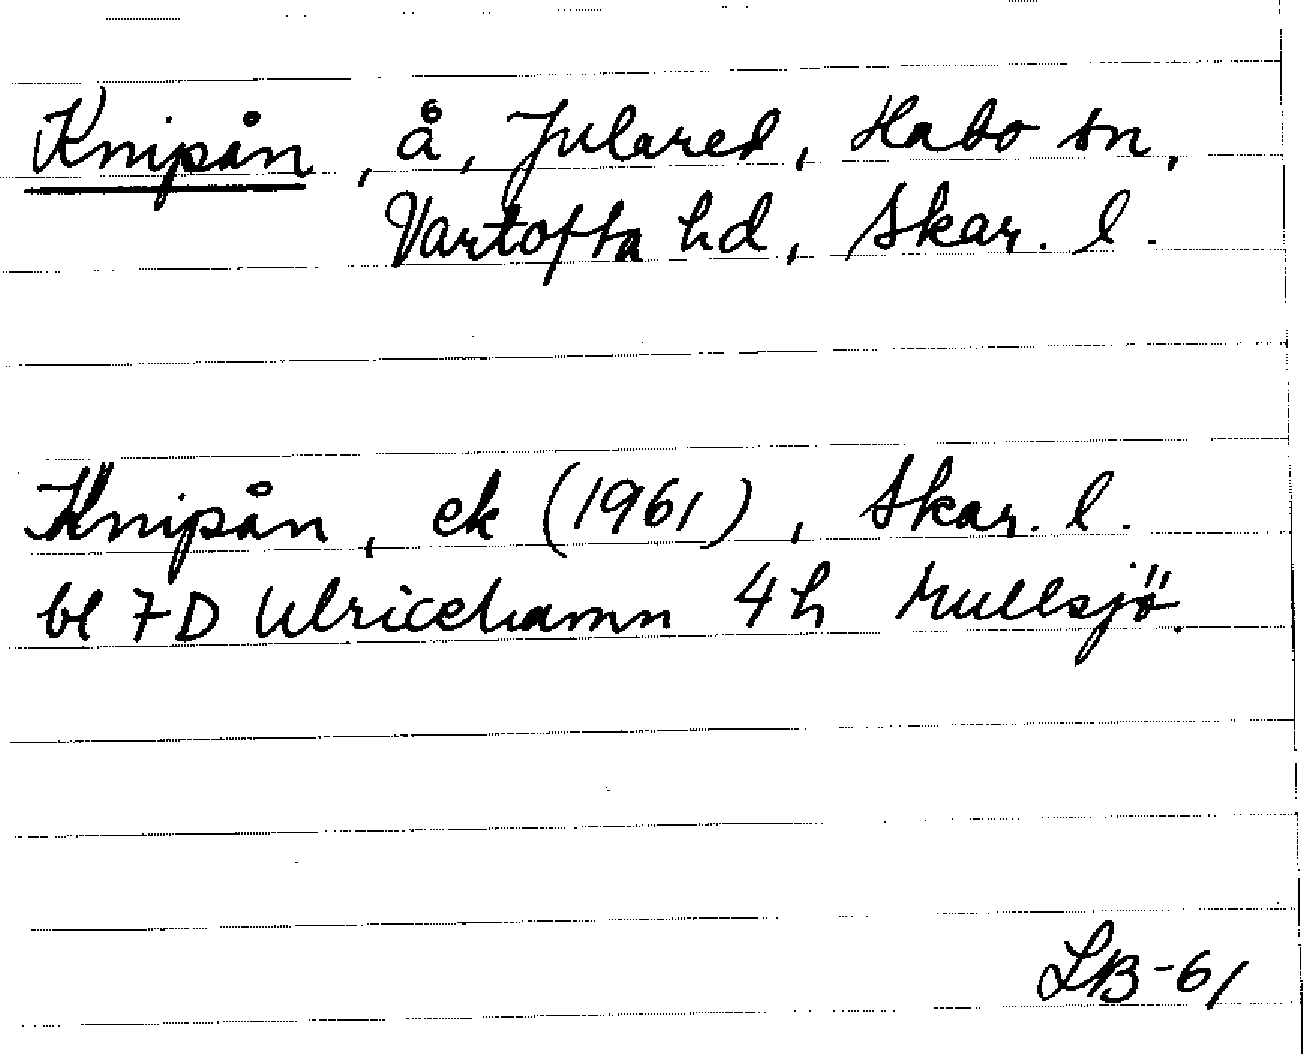 Knipån, å, Julared, Habo sn,
Vartofta hd, Skar. l.
Knipån, ek (1961), Skar. l.
bl 7D Ulricehamn 4h Mullsjö.
LB-61